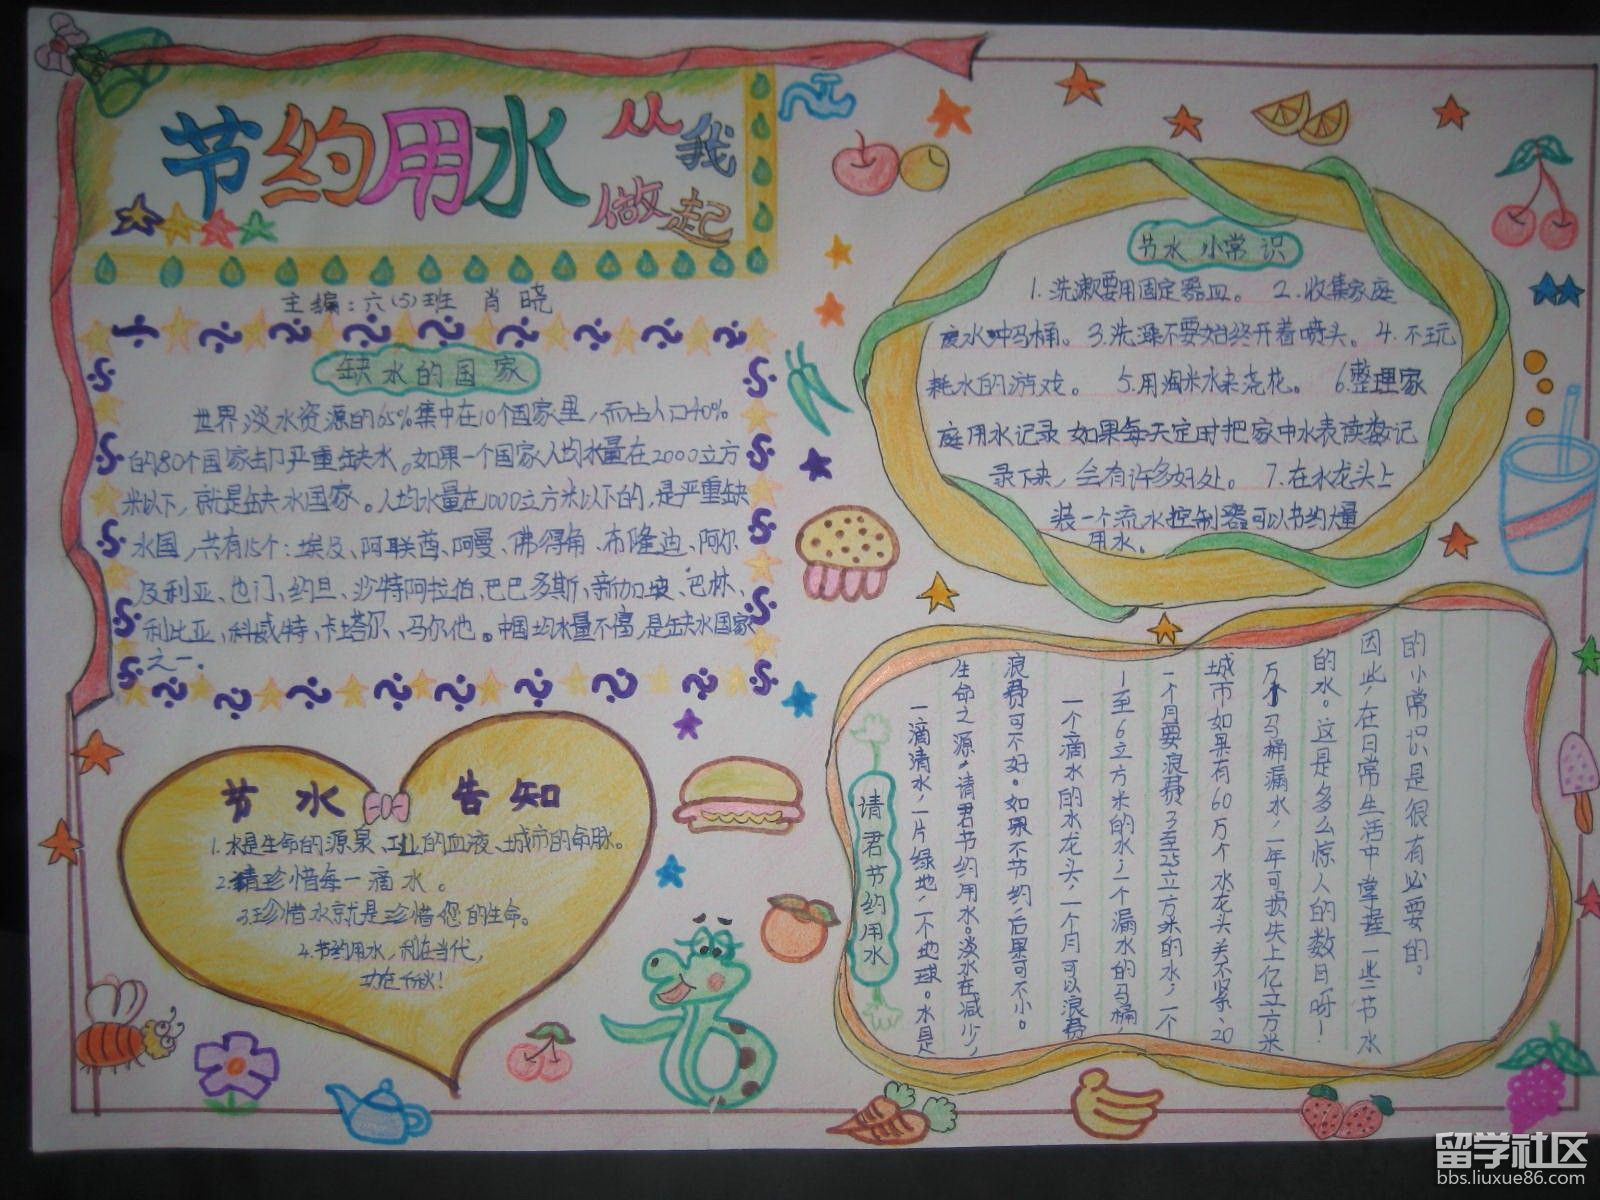 节约用水
从我
做起
主编:六(5)班 肖晓
缺水的国家
世界淡水资源的65%集中在10个国家里,而占人口40%
的80个国家却严重缺水。如果一个国家人均水量在2000立方
米以下,就是缺水国家。人均水量在1000立方米以下的,是严重缺
水国,共有15个:埃及、阿联酋、阿曼、佛得角、布隆迪、阿尔
及利亚、也门、约旦、沙特阿拉伯、巴巴多斯、新加坡、巴林、
利比亚、科威特、卡塔尔、马尔他。中国均水量不富,是缺水国家
之一.
节水 告知
1.水是生命的源泉、工业的血液、城市的命脉。
2.请珍惜每一滴水。
3.珍惜水就是珍惜您的生命。
4.节约用水,利在当代,
功在千秋!
节水小常识
1.洗漱要用固定器皿。 2.收集家庭
废水冲马桶。3.洗澡不要始终开着喷头。4.不玩
耗水的游戏。 5.用淘米水来浇花。 6.整理家
庭用水记录 如果每天定时把家中水表读数记
录下来,会有许多好处。 7.在水龙头上
装一个流水控制器可以节约大量
用水。
请君节约用水
一滴清水,一片绿地,一个地球。水是
生命之源,请君节约用水。淡水在减少,
浪费可不好。如果不节约,后果可不小。
一个滴水的水龙头,一个月可以浪费
1至6立方米的水,一个漏水的马桶
一个月要浪费3至25立方米的水,一个
城市如果有60万个水龙头关不紧、20
万个马桶漏水,一年可损失上亿立方米
的水。这是多么惊人的数目呀!
因此,在日常生活中掌握一些节水
的小常识是很有必要的。
留学社区
bbs.liuxue86.com